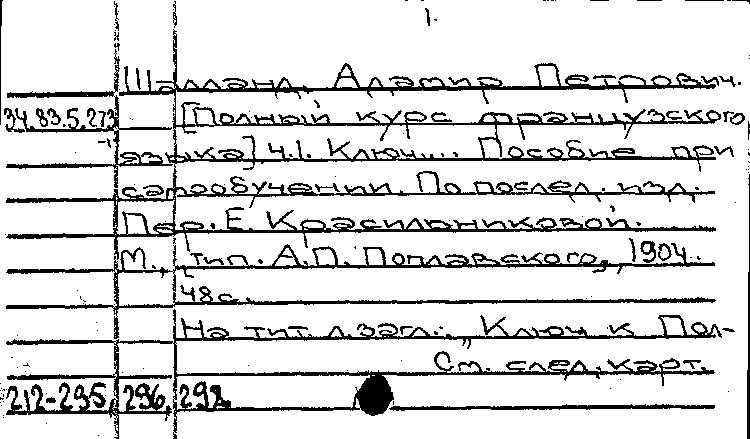 1.
Шалланд, Адамир Петрович.
34.83.5.273 [Полный курс французского
языка] Ч.1. Ключ... Пособие при
самообучении. По послед. изд.
Пер. Е. Красильниковой.
М., тип. А.П. Поплавского, 1904.
48 с.
На тит. л. загл.: „Ключ к Пол-
См. след. карт.
212-295, 296, 292